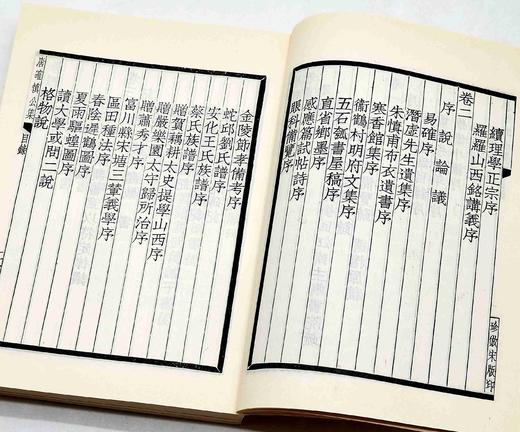 續理學正宗序
羅羅山西銘講義序
卷二
序說論議
易確序
潛虛先生遺集序
朱慎甫布衣遺書序
寒香館集序
衞鶴村明府文集序
五石瓠書屋稿序
直省鄉墨序
感應篇試帖詩序
眼科備覽序
珍倣宋版印
金陵節孝備考序
蛇邱劉氏族譜序
安化王氏族譜序
蔡氏族譜序
贈賀耦耕太史提學山西序
贈嚴樂園太守歸所治序
贈蕭秀才序
富川縣宋塘三輋義學序
區田種法序
春陰遲鶴圖序
夏雨驅蝗圖序
讀大學或問二說
格物說
唐確慎公集 目錄